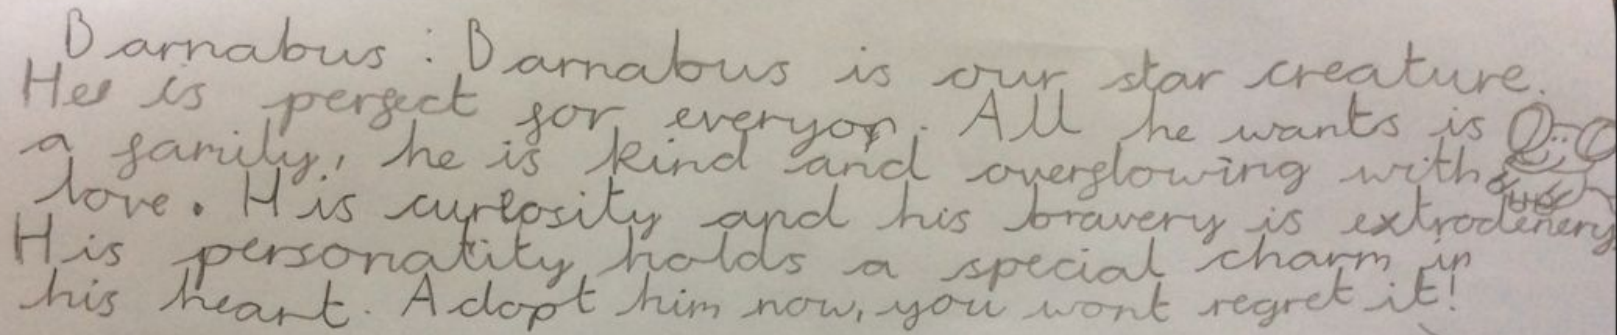 Barnabus : Barnabus is our star creature.
He is perfect for everyon. All he wants is
a family, he is kind and overflowing with
love. His curiosity and his bravery is extrodenery
His personality holds a special charm in
his heart. Adopt him now, you wont regret it!